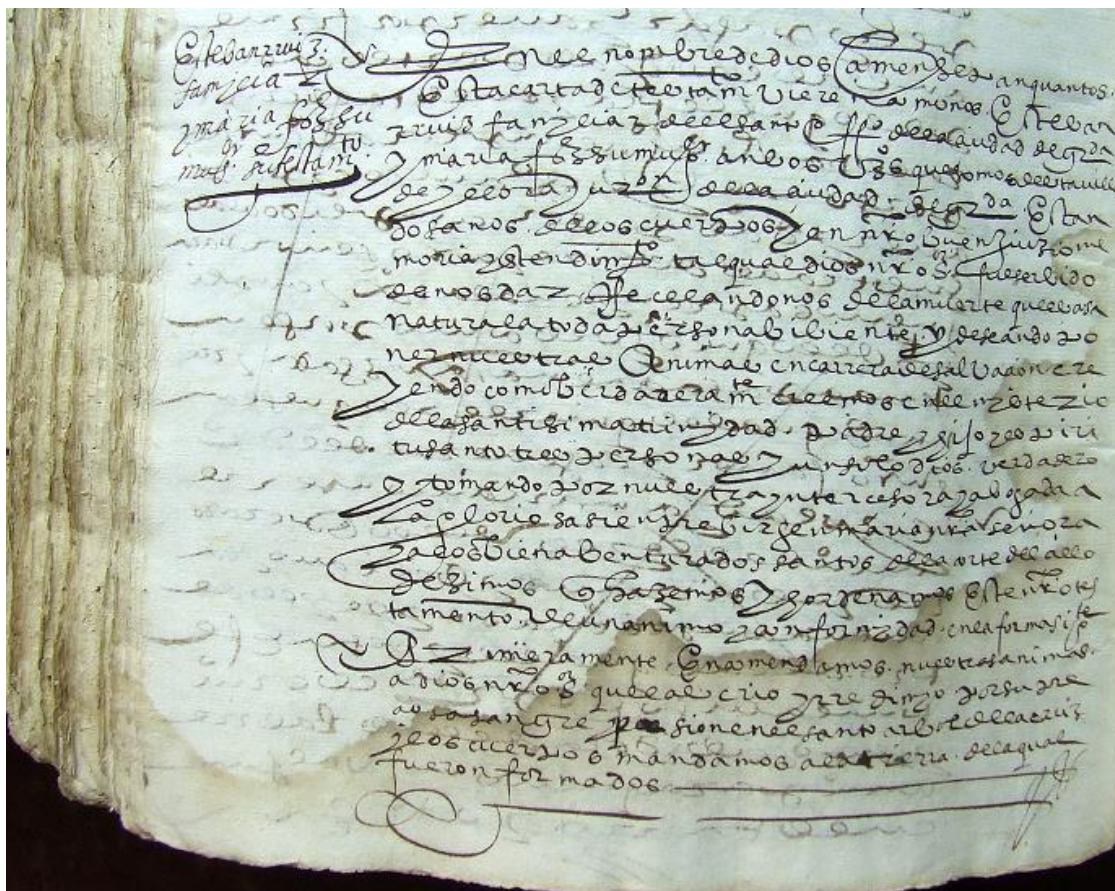 Esteban rruiz
familiar
y maria frz su
muger su testamto
En el nonbre de dios amen sepan quantos
Esta carta de testamto vieren como nos Esteban
rruiz familiar del santo offo de la ciudad de grda
y maria frz su muger anbos vos que somos de esta villa
de yllora juron de la ciudad de grda Estan
do sanos de los cuerpos y en nro buen juizio me
moria y entendimto tal qual dios nro sr fue serbido
de nos dar Recelandonos de la muerte que es cosa
natural a toda persona biviente y deseando po
ner nuestras animas en carrera de salvacion cre
yendo como berdaderamte creemos en el misterio
de la santisima trinydad padre y hijo y espiri
tu santo tres personas y un solo dios verdadero
y tomando por nuestra ynterçesora y abogada
a la gloriosa sienpre birgen maria nra señora
y a los bienabenturados santos de la corte del çielo
dezimos que hazemos y hordenamos Este nro tes
tamento de un animo y conformidad en la forma sigte
Primeramente Encomendamos nuestras animas
a dios nro sr que las crio y rredimio por su pre
ciosa sangre pasion en el santo arbol de la cruz
y los cuerpos mandamos a la tierra de la qual
fueron formados